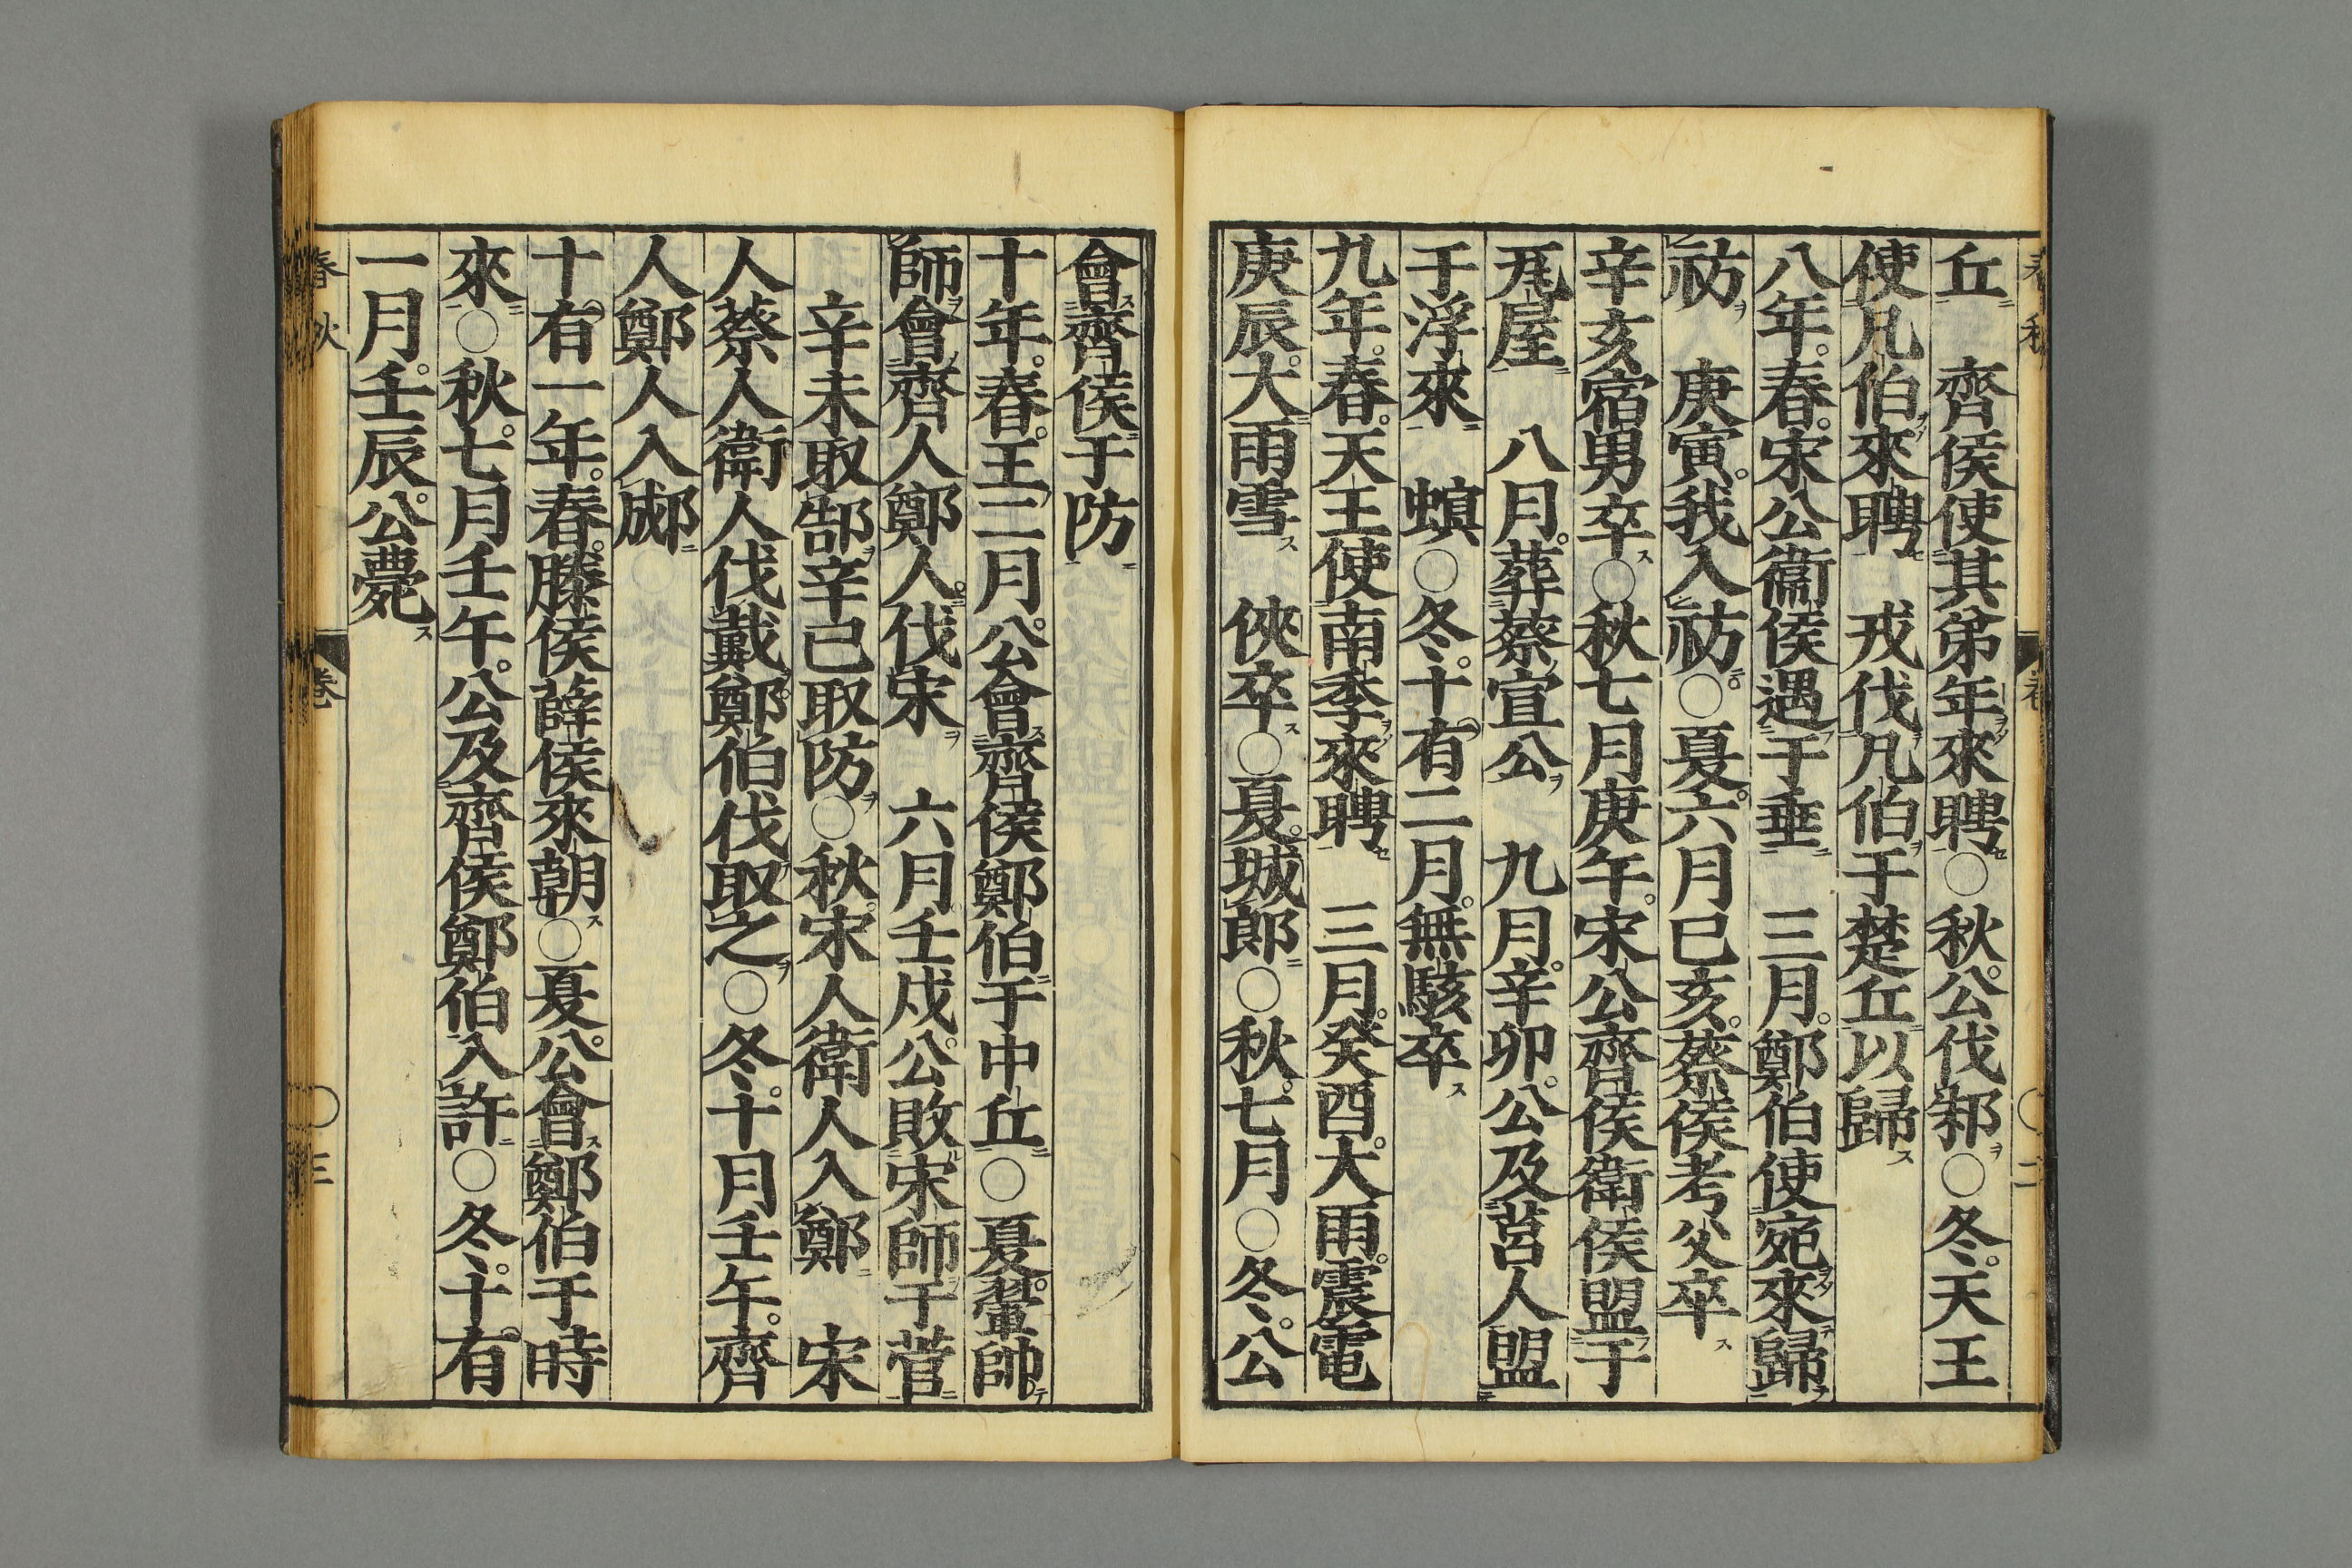 丘 齊侯使其弟年來聘○秋公伐邾○冬天王
使凡伯來聘 戎伐凡伯于楚丘以歸
八年春宋公衞侯遇于垂 三月鄭伯使宛來歸
祊 庚寅我入祊○夏六月己亥蔡侯考父卒
辛亥宿男卒○秋七月庚午宋公齊侯衛侯盟于
瓦屋 八月葬蔡宣公 九月辛卯公及莒人盟
于浮來 螟○冬十有二月無駭卒
九年春天王使南季來聘 三月癸酉大雨震電
庚辰大雨雪 俠卒○夏城郎○秋七月○冬公
會齊侯于防
十年春王二月公會齊侯鄭伯于中丘○夏翬帥
師會齊人鄭人伐宋 六月壬戌公敗宋師于菅
辛未取郜辛巳取防○秋宋人衛人入鄭 宋
人蔡人衛人伐戴鄭伯伐取之○冬十月壬午齊
人鄭人入郕
十有一年春滕侯薛侯來朝○夏公會鄭伯于時
來○秋七月壬午公及齊侯鄭伯入許○冬十有
一月壬辰公薨
春秋 卷 ○三